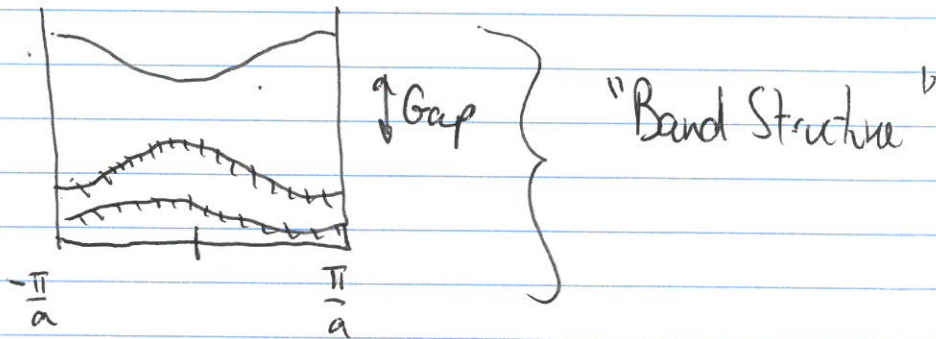 ↕Gap
"Band Structure"
-π/a
π/a